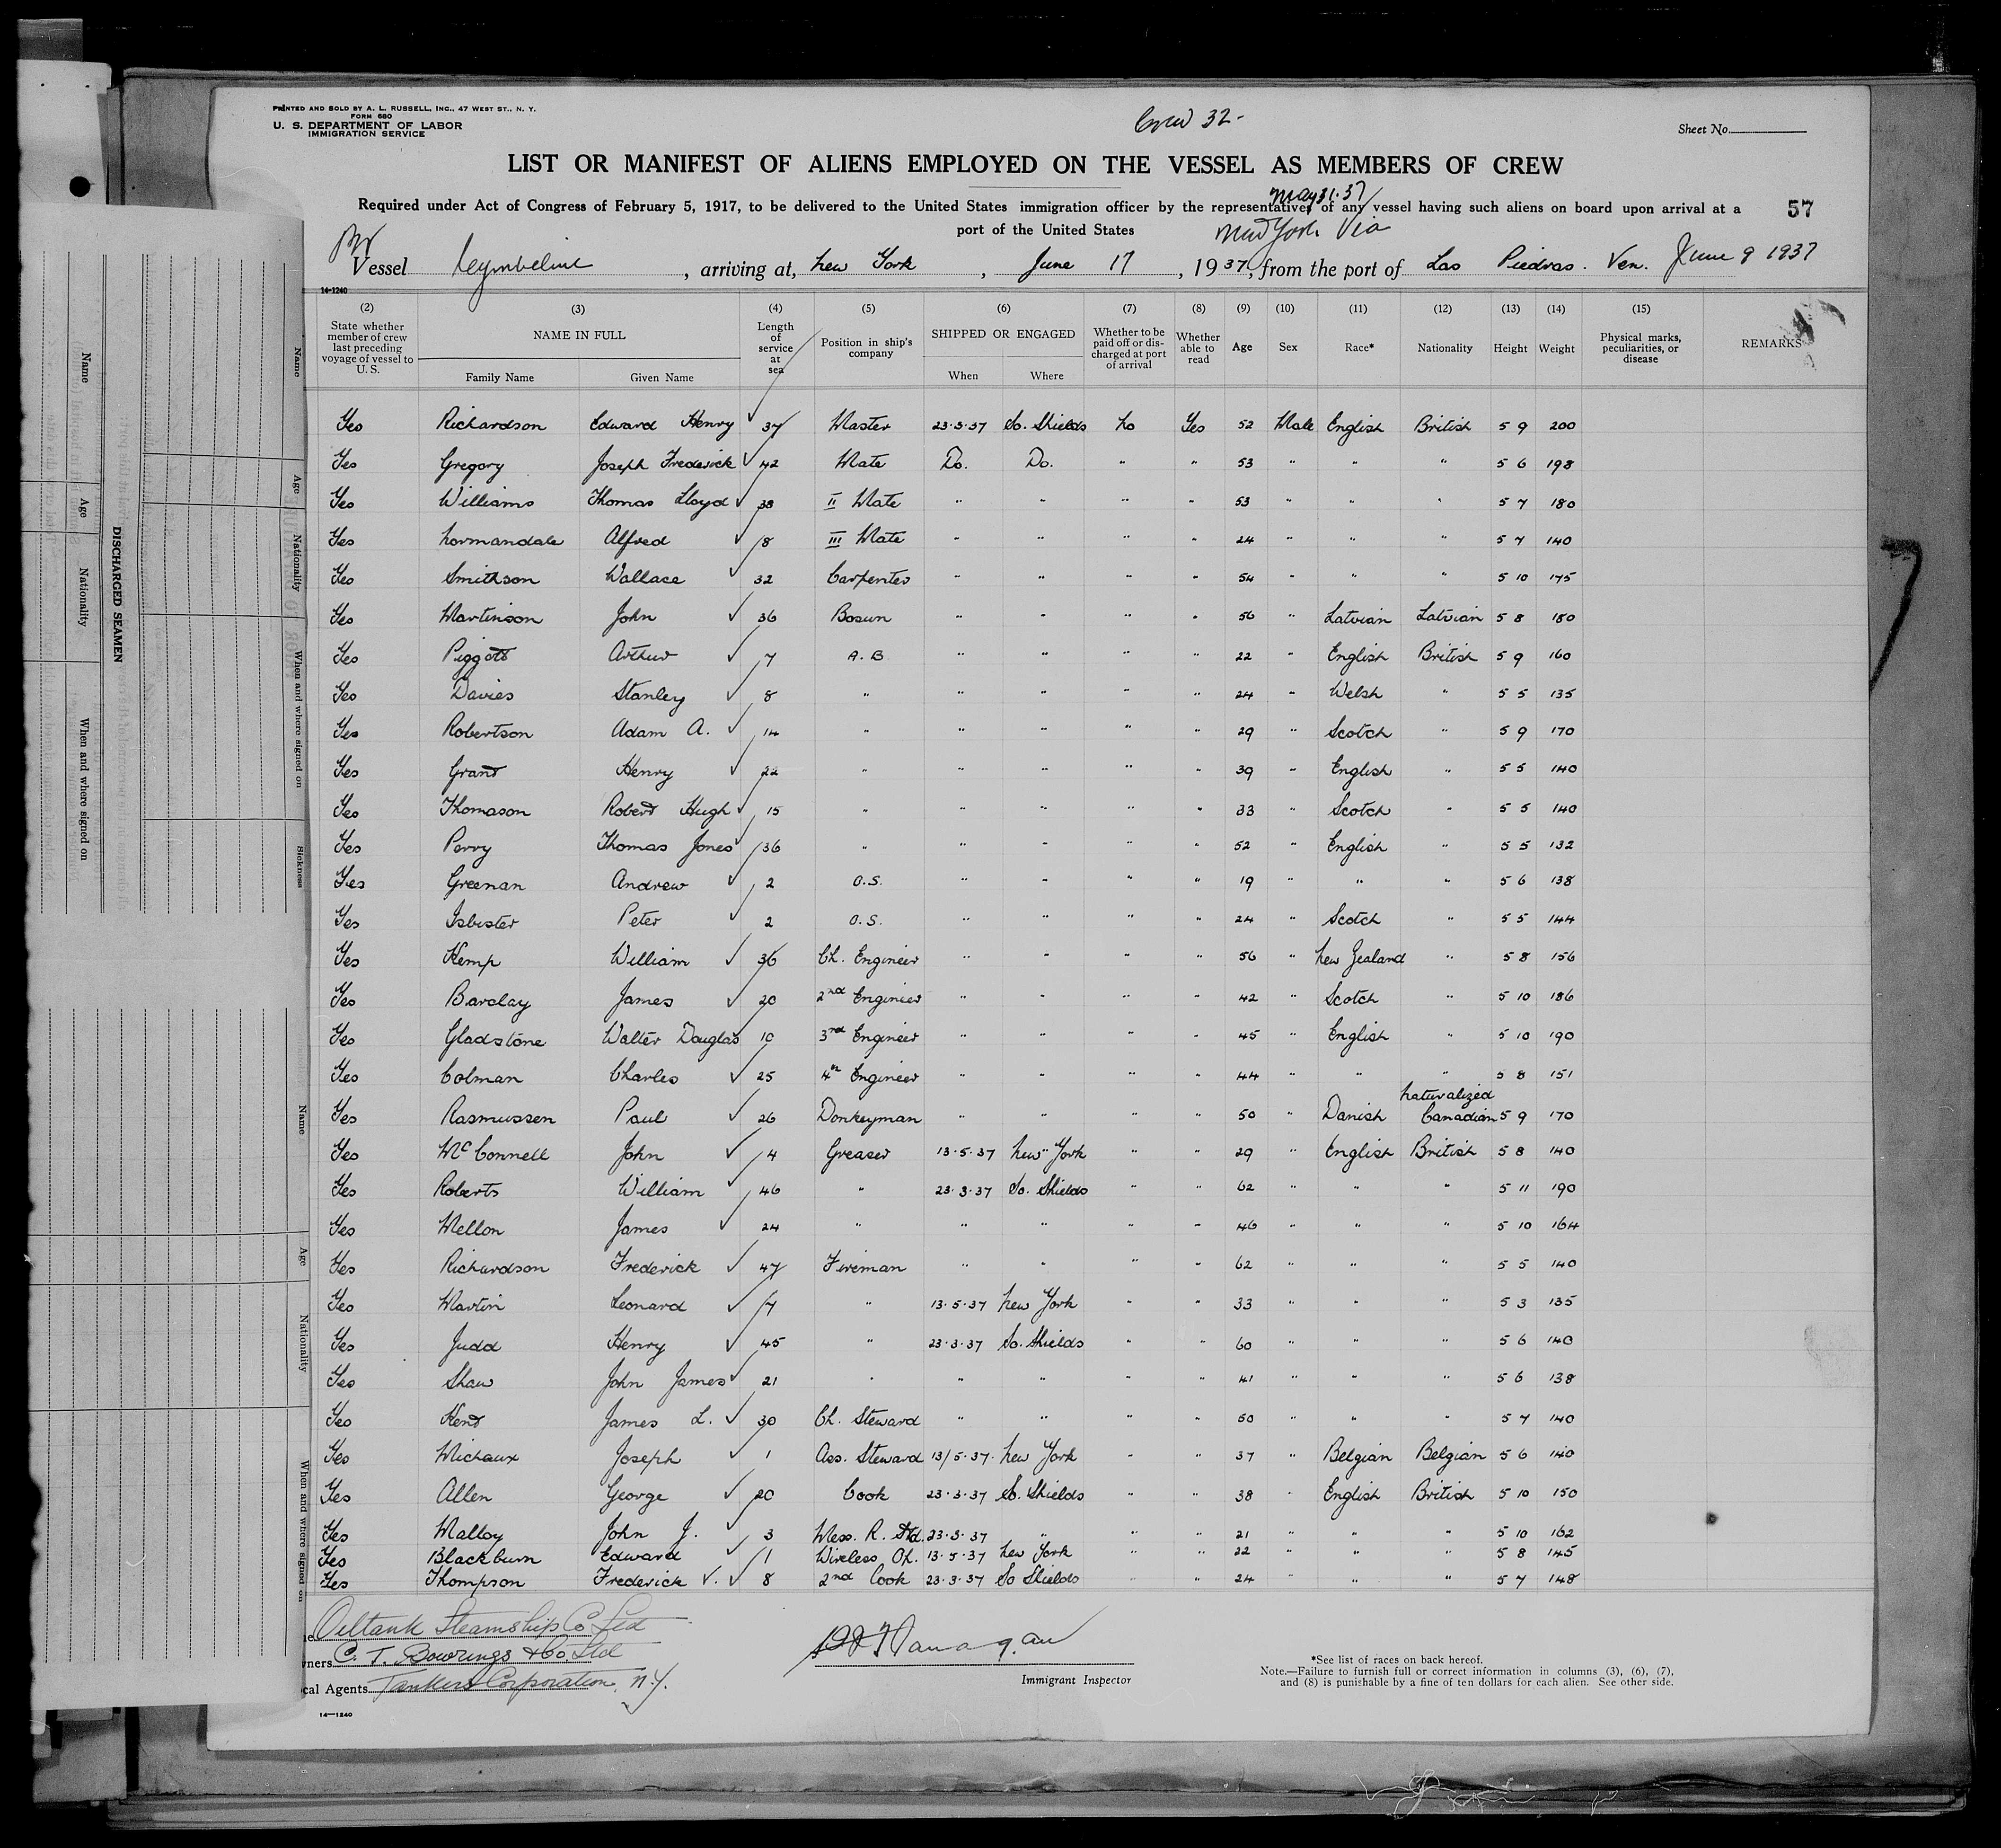 PRINTED AND SOLD BY A. L. RUSSELL, INC., 47 WEST ST., N. Y.
FORM 680
U. S. DEPARTMENT OF LABOR
IMMIGRATION SERVICE
Crew 32-
Sheet No.
LIST OR MANIFEST OF ALIENS EMPLOYED ON THE VESSEL AS MEMBERS OF CREW
May 21.37
Required under Act of Congress of February 5, 1917, to be delivered to the United States immigration officer by the representatives of any vessel having such aliens on board upon arrival at a
57
port of the United States
New York Via
Br
Vessel Cymbeline, arriving at, New York, June 17, 1937, from the port of Las Piedras. Ven. June 9 1937
14-1240
(2) (3) (4) (5) (6) (7) (8) (9) (10) (11) (12) (13) (14) (15)
State whether member of crew last preceding voyage of vessel to U. S. NAME IN FULL Family Name Given Name Length of service at sea Position in ship's company SHIPPED OR ENGAGED When Where Whether to be paid off or discharged at port of arrival Whether able to read Age Sex Race* Nationality Height Weight Physical marks, peculiarities, or disease REMARKS
Yes Richardson Edward Henry 37 Master 23.3.37 So. Shields No Yes 52 Male English British 5 9 200
Yes Gregory Joseph Frederick 42 Mate Do. Do. " " 53 " " " 5 6 198
Yes Williams Thomas Lloyd 38 II Mate " " " " 53 " " " 5 7 180
Yes Normandale Alfred 8 III Mate " " " " 24 " " " 5 7 140
Yes Smithson Wallace 32 Carpenter " " " " 54 " " " 5 10 175
Yes Martinson John 36 Bosun " " " " 56 " Latvian Latvian 5 8 180
Yes Piggott Arthur 7 A.B. " " " " 22 " English British 5 9 160
Yes Davies Stanley 8 " " " " " 24 " Welsh " 5 5 135
Yes Robertson Adam A. 14 " " " " " 29 " Scotch " 5 9 170
Yes Grant Henry 22 " " " " " 39 " English " 5 5 140
Yes Thomason Robert Hugh 15 " " " " " 33 " Scotch " 5 5 140
Yes Perry Thomas Jones 36 " " " " " 52 " English " 5 5 132
Yes Greenan Andrew 2 O.S. " " " " 19 " " " 5 6 138
Yes Isbister Peter 2 O.S. " " " " 24 " Scotch " 5 5 144
Yes Kemp William 36 Ch. Engineer " " " " 56 " New Zealand " 5 8 156
Yes Barclay James 20 2nd Engineer " " " " 42 " Scotch " 5 10 186
Yes Gladstone Walter Douglas 10 3rd Engineer " " " " 45 " English " 5 10 190
Yes Colman Charles 25 4th Engineer " " " " 44 " " " 5 8 151
Yes Rasmussen Paul 26 Donkeyman " " " " 50 " Danish Naturalized Canadian 5 9 170
Yes McConnell John 4 Greaser 13.5.37 New York " " 29 " English British 5 8 140
Yes Roberts William 46 " 23.3.37 So. Shields " " 62 " " " 5 11 190
Yes Mellon James 24 " " " " " 46 " " " 5 10 164
Yes Richardson Frederick 47 Fireman " " " " 62 " " " 5 5 140
Yes Martin Leonard 7 " 13.5.37 New York " " 33 " " " 5 3 135
Yes Judd Henry 45 " 23.3.37 So. Shields " " 60 " " " 5 6 140
Yes Shaw John James 21 " " " " " 41 " " " 5 6 138
Yes Kent James L. 30 Ch. Steward " " " " 50 " " " 5 7 140
Yes Michaux Joseph 1 Ass. Steward 13/5.37. New York " " 37 " Belgian Belgian 5 6 140
Yes Allen George 20 Cook 23.3.37 So. Shields " " 38 " English British 5 10 150
Yes Malloy John J. 3 Mess. R. Std. 23.3.37 " " " 21 " " " 5 10 162
Yes Blackburn Edward 1 Wireless Op. 13.5.37 New York " " 22 " " " 5 8 145
Yes Thompson Frederick V. 8 2nd Cook 23.3.37 So Shields " " 24 " " " 5 7 148
Oiltank Steamship Co Ltd
wners C. T. Bowrings & Co Ltd
cal Agents Tankers Corporation, N.Y.
Immigrant Inspector
*See list of races on back hereof.
Note.—Failure to furnish full or correct information in columns (3), (6), (7),
and (8) is punishable by a fine of ten dollars for each alien. See other side.
14—1240
DISCHARGED SEAMEN
Name
Age
Nationality
When and where signed on
Name
Age
Nationality
When and where signed on
Sickness
Name
Age
Nationality
When and where signed on